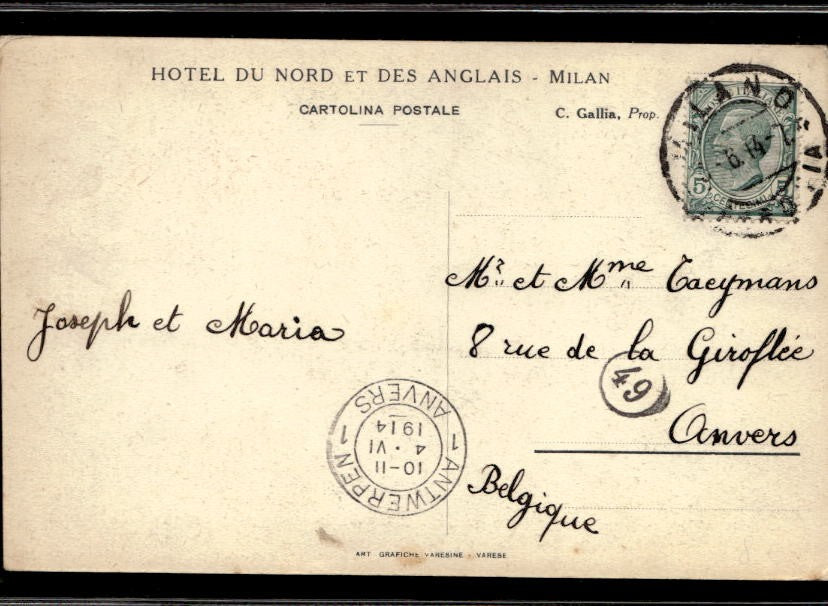 HOTEL DU NORD ET DES ANGLAIS - MILAN
CARTOLINA POSTALE
C. Gallia, Prop.
MILANO
6.14
5
Mr. et Mme Taeymans
8 rue de la Giroflée
49
Anvers
Belgique
Joseph et Maria
1 ANTWERPEN 1
ANVERS
10-11
4 · VI
1914
ART GRAFICHE VARESINE - VARESE